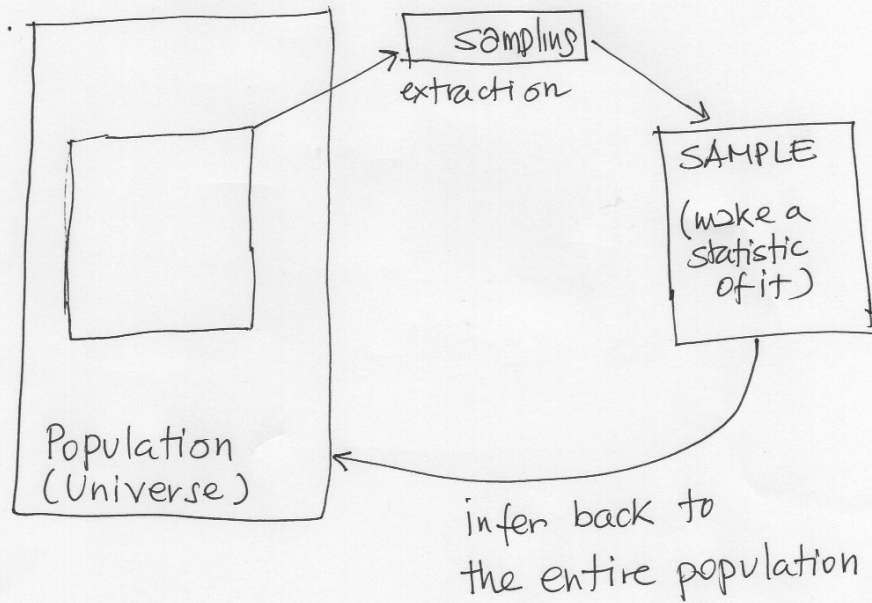 sampling
extraction
SAMPLE
(make a
statistic
of it)
Population
(Universe)
infer back to
the entire population